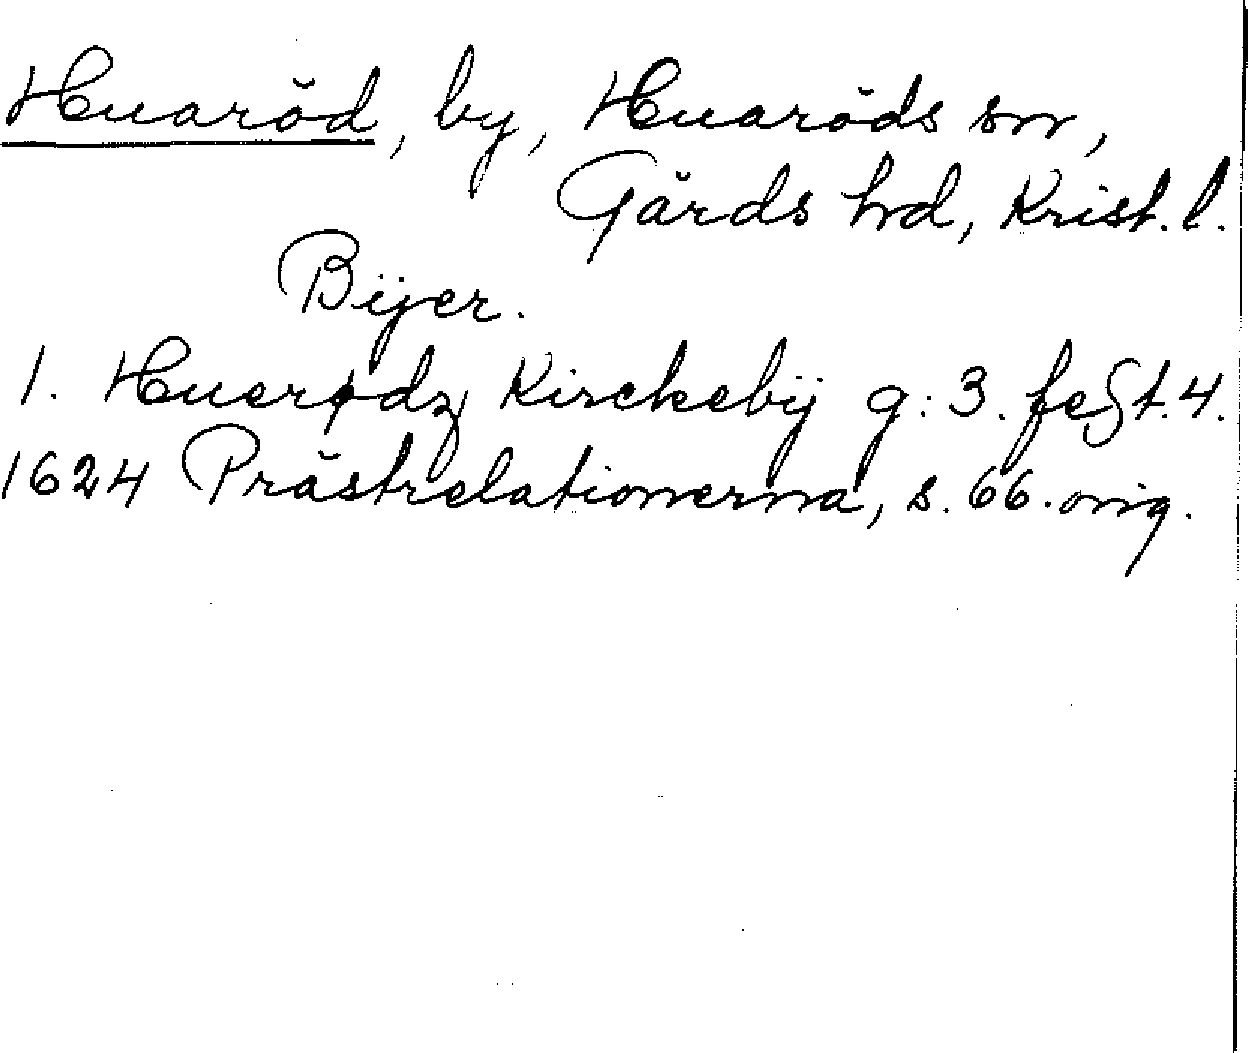 Huaröd, by, Huaröds sn,
Gärds hd, Krist. l.
Bÿer.
1. Huerødz Kirckebÿ g: 3. feßt. 4.
1624 Prästrelationerna, s. 66. orig.